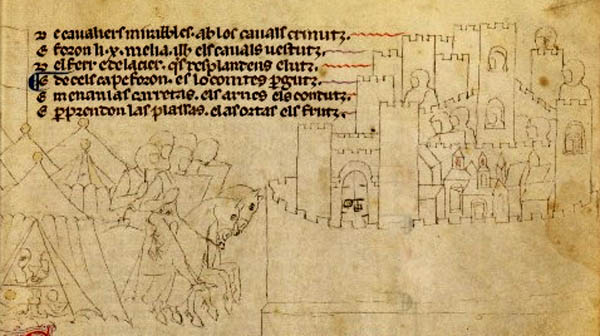 D e cavaliers mirables. ab los cavals crinutz.
E foron li. x. melia. els cavals vestutz.
D el ferr e del acier. qes resplandens e lutz.
E de cels ca pe foron. es lo comtes ꝑgutz.
E menan las carretas. els arnes els condutz.
E ꝑprendon las plassas. e las ortas els frutz.